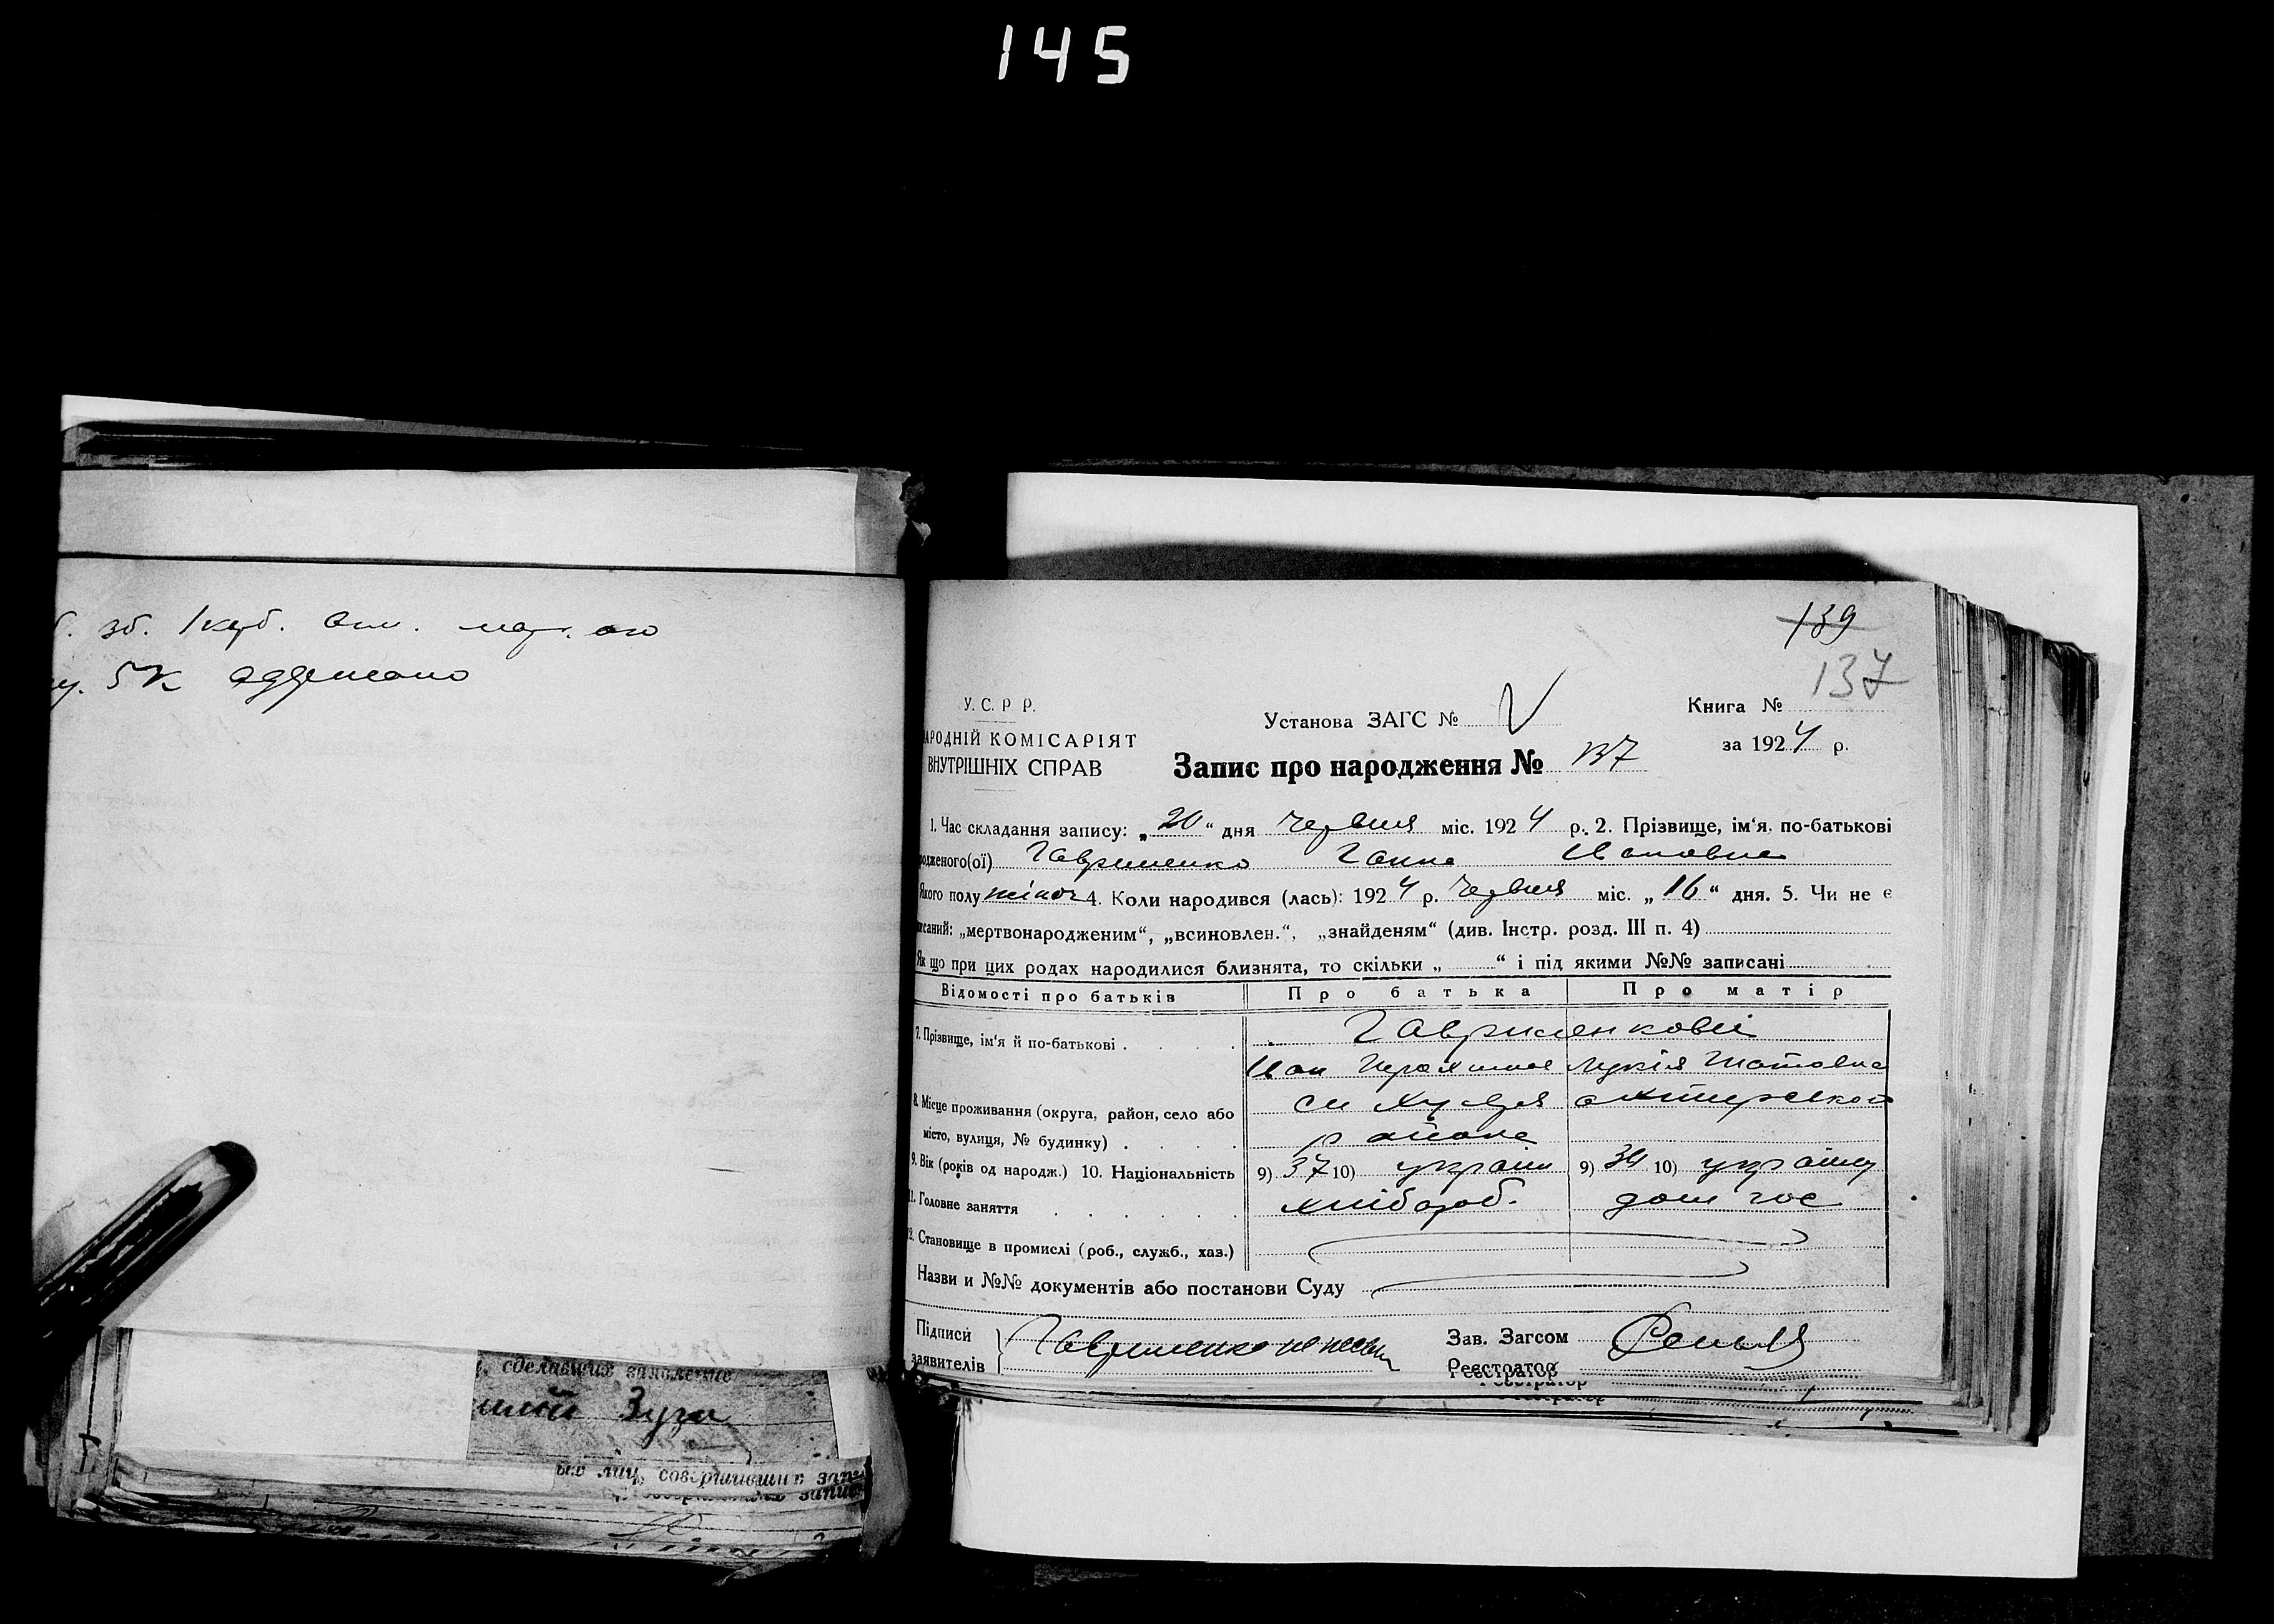 145
зб. 1 карб.
5 К одержано
сделавших заявление
Зуза
лиц, совершивших запи
139
137
У. С. Р. Р.
Установа ЗАГС № V
Книга №
АРОДНІЙ КОМІСАРІЯТ
за 1924 р.
ВНУТРІШНІХ СПРАВ
Запис про народження № 137
1. Час складання запису: „20“ дня Червня міс. 1924 р. 2. Прізвище, ім‘я, по-батькові
родженого(ої) Гавриленко Ганна Ивановна
Якого полу жіноч 4. Коли народився (лась): 1924 р. Червня міс. „16“ дня. 5. Чи не є
писаний: „мертвонародженим“, „всиновлен.“, „знайденям“ (див. Інстр. розд. III п. 4)
Як що при цих родах народилися близнята, то скільки „ “ і під якими №№ записані
Відомості про батьків Про батька Про матір
Гавриленкови
7. Прізвище, ім‘я й по-батькові .
Иван Лукія
8. Місце проживання (округа, район, село або
місто, вулиця, № будинку) . района
9. Вік (років од народж.) 10. Національність 9) 37 10) україн 9) 34 10) україн
11. Головне заняття хлібороб. дом гос
12. Становище в промислі (роб., служб., хаз.)
Назви и №№ документів або постанови Суду
Підписи
заявителів
Гавриленко
Зав. Загсом
Реєстратор